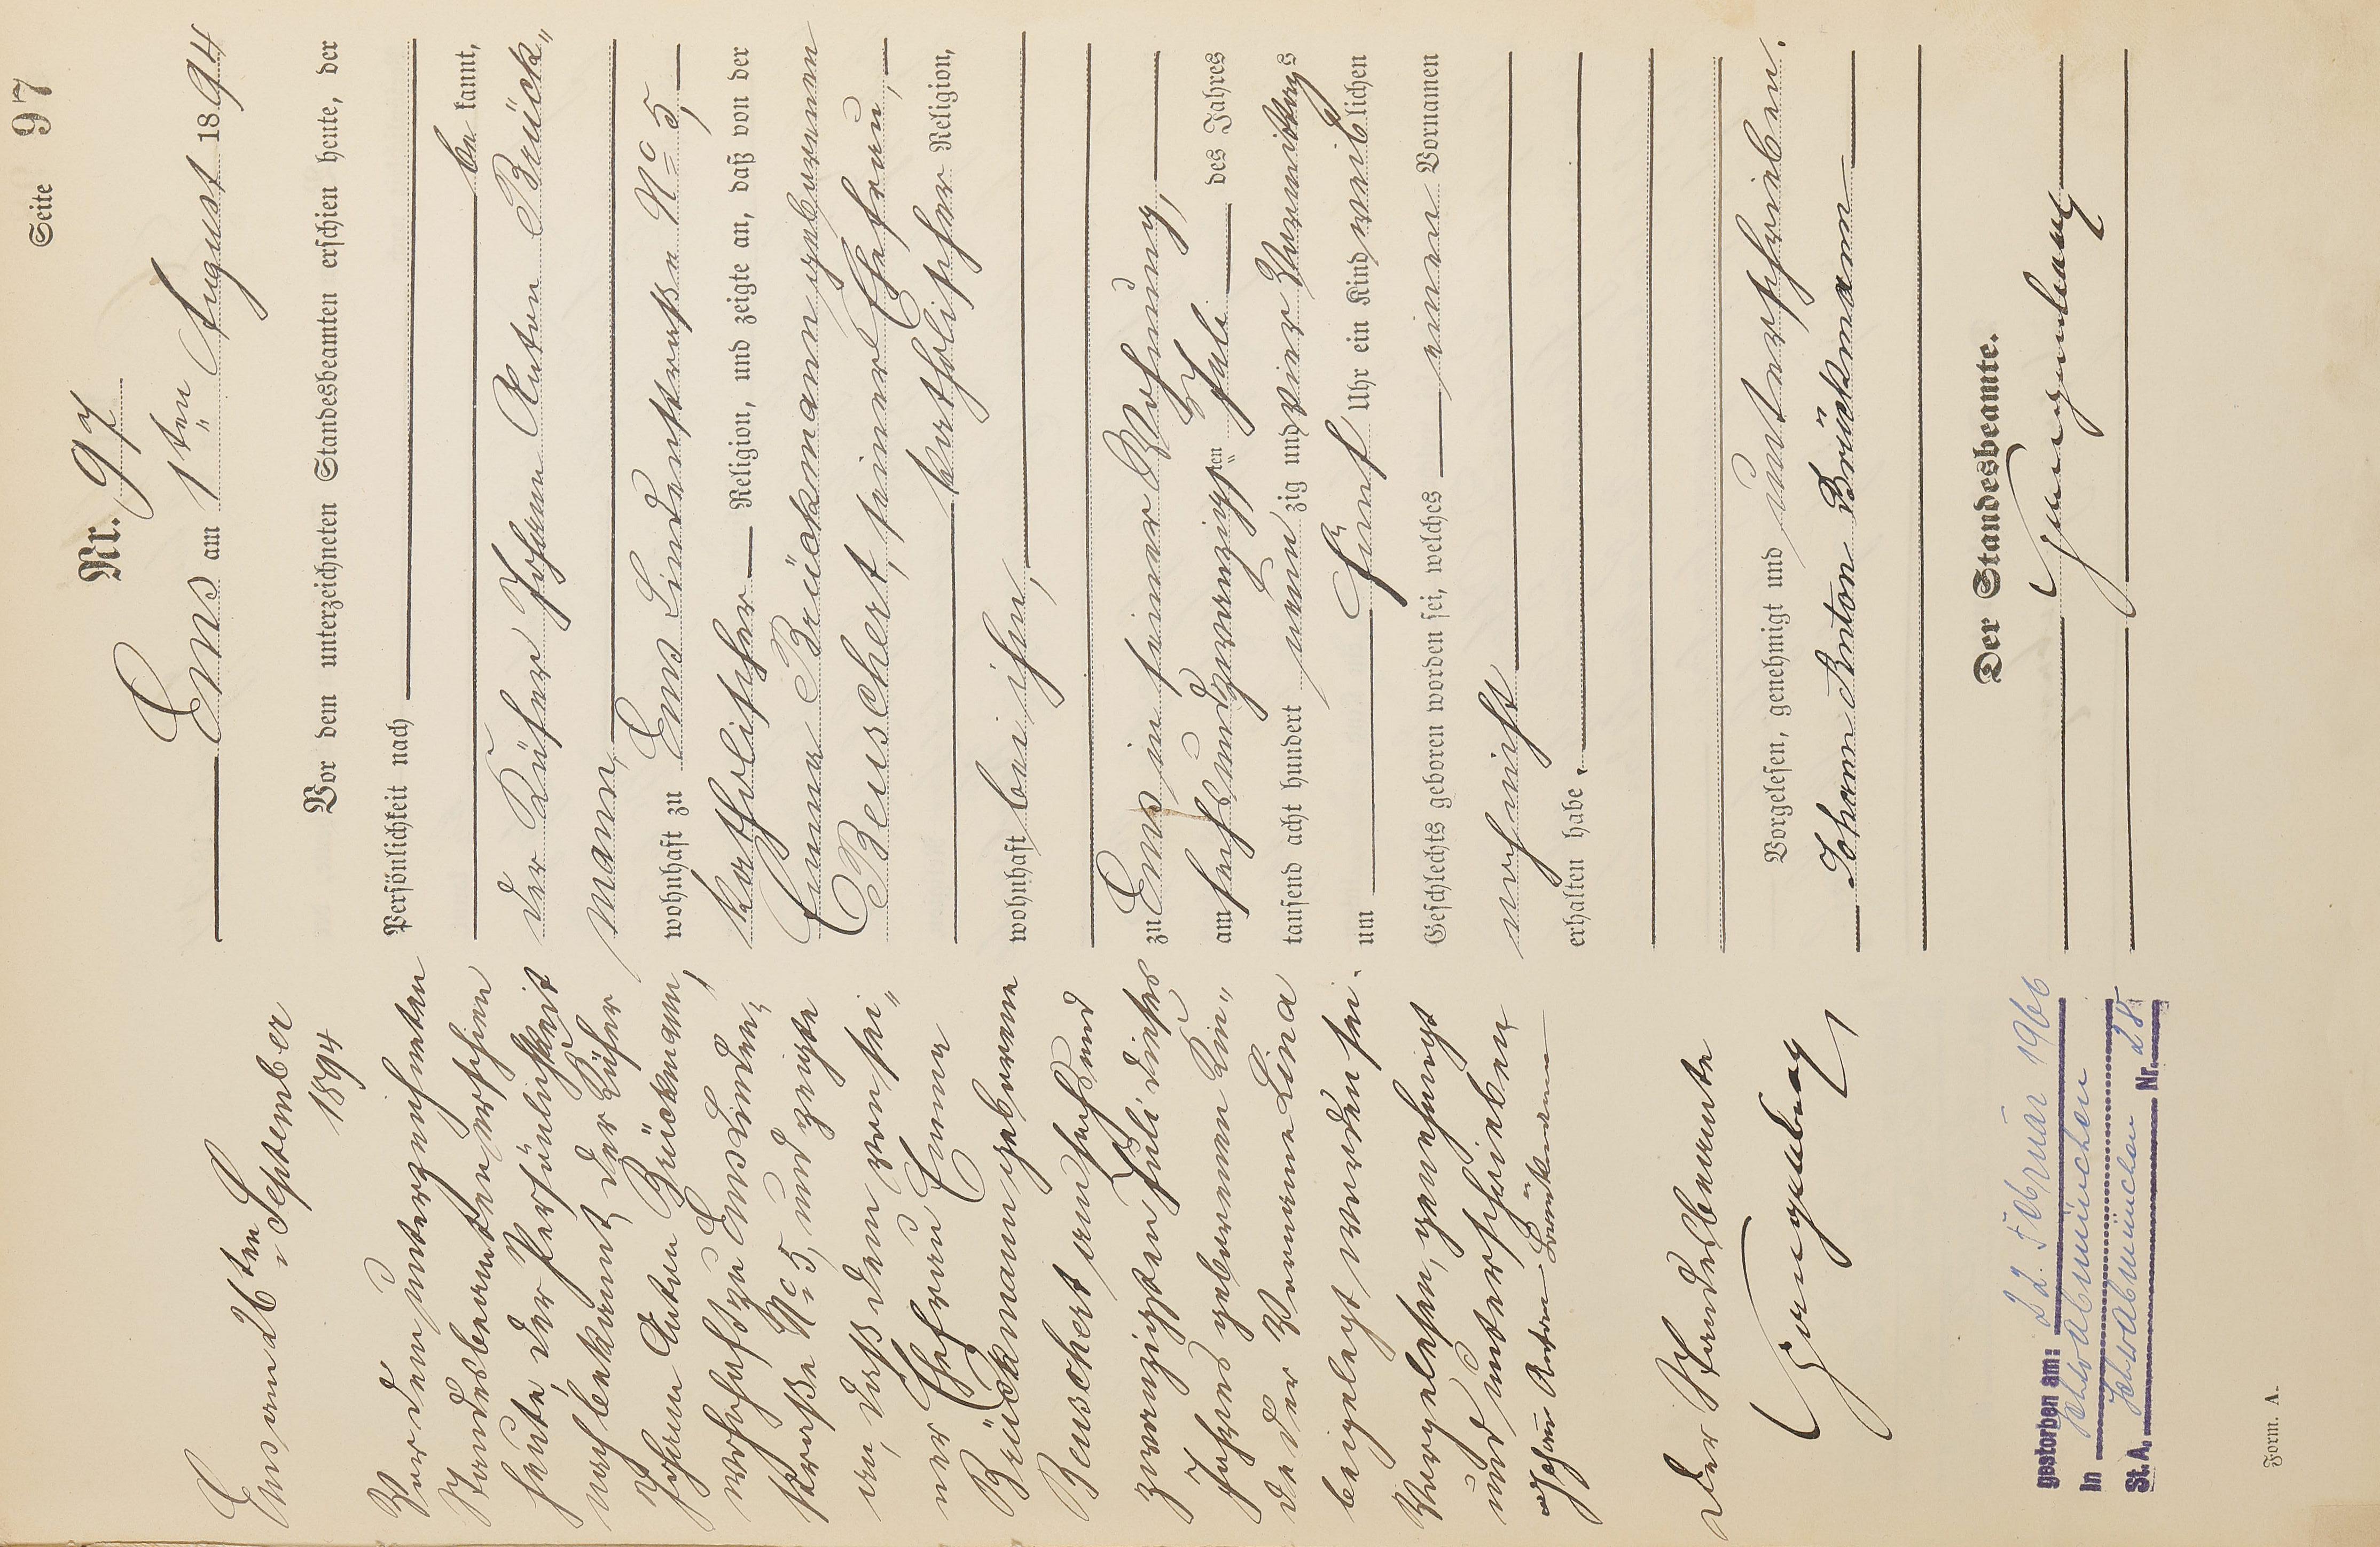 Seite 97
Nr. 97
Ems am 1ten August 1894
Vor dem unterzeichneten Standesbeamten erschien heute, der
Persönlichkeit nach
be kannt,
der Küfer Johann Anton Brück„
mann,
wohnhaft zu Ems Lindenstraße No 5,
katholischer Religion, und zeigte an, daß von der
Emma Brückmann geborenen
Beuschert, seiner Ehefrau,
katholischer Religion,
wohnhaft bei ihm,
zu Ems in seiner Wohnung,
am sechsundzwanzigsten Juli des Jahres
tausend acht hundert neun zig und vier Vormittags
um fünf Uhr ein Kind weiblichen
Geschlechts geboren worden sei, welches einen Vornamen
noch nicht
erhalten habe.
Vorgelesen, genehmigt und unterschrieben.
Johann Anton Brückmann
Der Standesbeamte.
Ems am 26ten September
1894
Vor dem unterzeichneten
Standesbeamten erschien
heute, der Persönlichkeit
nach bekannt, der Küfer
Johann Anton Brückmann,
wohnhaft zu Ems Linden„
straße No 5, und zeigte
an, daß dem von sei„
ner Ehefrau Emma
Brückmann geborene
Beuschert am sechsund
zwanzigsten Juli dieses
Jahres geborenen Kin„
de der Vorname Lina
beigelegt worden sei.
Vorgelesen, genehmigt
und unterschrieben
Johann Anton Brückmann
Der Standesbeamte
gestorben am: 22. Februar 1966
in Schwabmünchen
St.A. Schwabmünchen Nr. 28
Form. A.